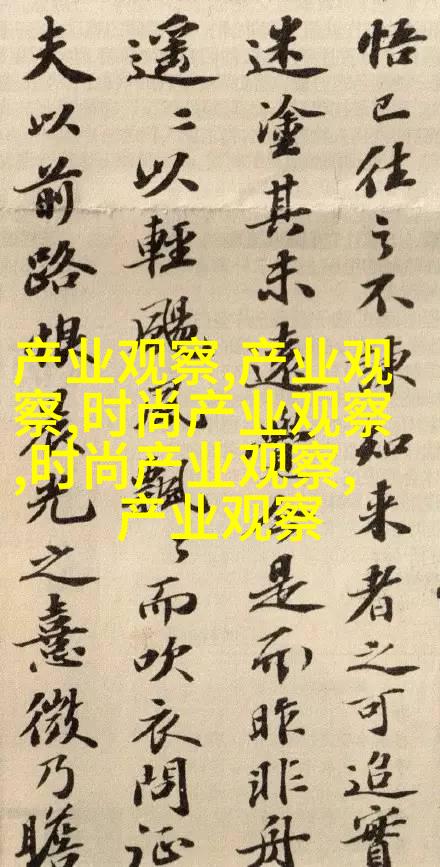 悟已往之不諫知来者之可追實
迷塗其未遠是而昨非舟
遥〻以輕颺飄〻而吹衣問征
夫以前路恨晨光之熹微乃瞻
产业观察,产业观
察,时尚产业观察
,时尚产业观察,
产业观察